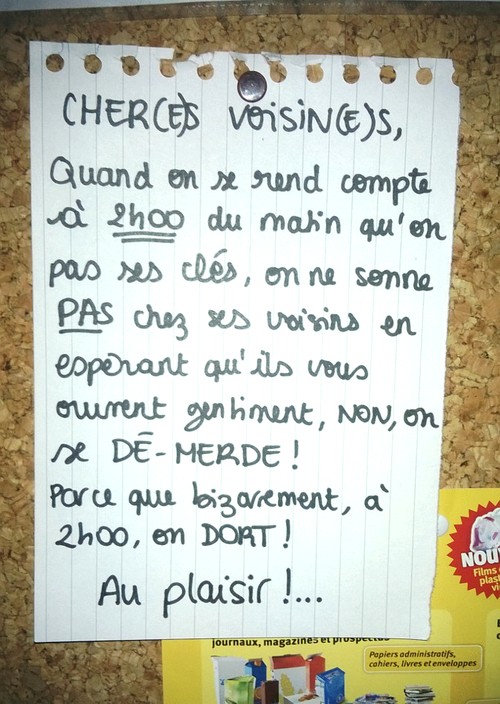 CHER(E)S VOISIN(E)S,
Quand on se rend compte
à 2h00 du matin qu'on
pas ses clés, on ne sonne
PAS chez ses voisins en
espérant qu'ils vous
ouvrent gentiment, NON, on
se DÉ-MERDE !
Parce que bizarement, à
2h00, on DORT !
Au plaisir !...
NOU
Films
plast
vi
journaux, magazines et prospectus
Papiers administratifs,
cahiers, livres et enveloppes